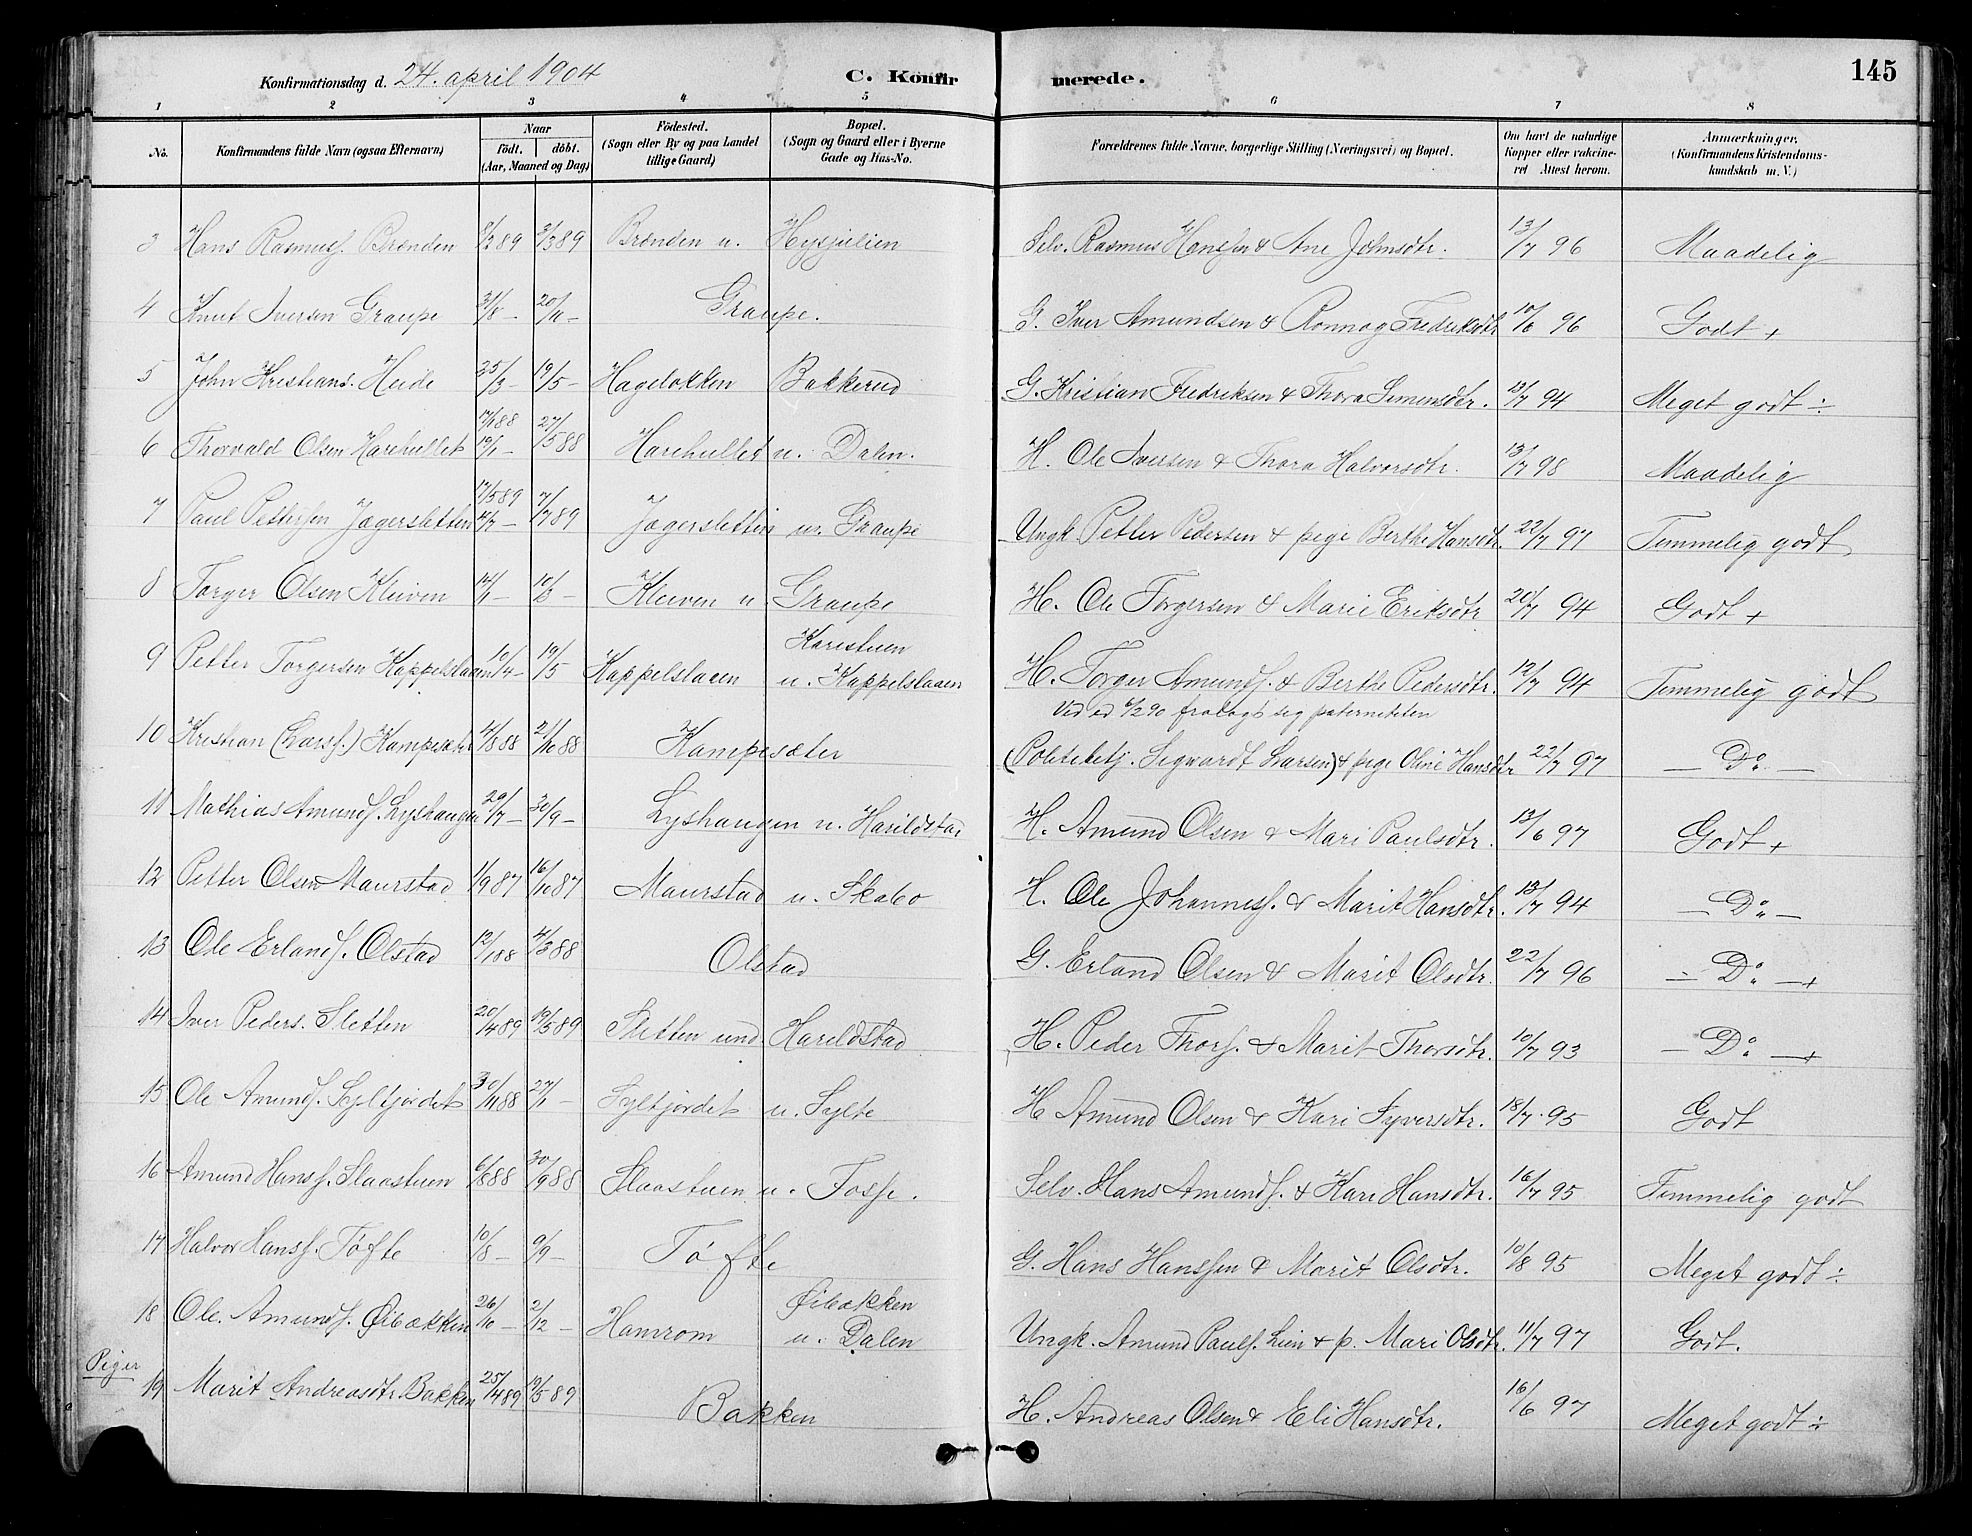 145
Konfirmationsdag d. 24. april 1904 C. Konfirmerede.
1 2 3 4 5 6 7 8
No. Konfirmandens fulde Navn (ogsaa Efternavn) Naar født. døbt. (Aar, Maaned og Dag) Fødested. (Sogn eller By og paa Landet tillige Gaard) Bopæl. (Sogn og Gaard eller i Byerne Gade og Hus-No. Forældrenes fulde Navne, borgerlige Stilling (Næringsvei) og Bopæl. Om havt de naturlige Kopper eller vakcineret Attest herom. Anmærkninger. (Konfirmandens Kristendomskundskab m. V.)
3 Hans Rasmusf. Brænden 2/3 89 Brænden u. Hysjulien Selv. Rasmus Hansen & Ane Johnsdtr. 13/7 96 Maadelig
4 Knut Iversen Graupe 31/8 - 20/11 - Graupe. G. Iver Amundsen & Ronnog Fredriksdtr 10/6 96 Godt +
5 John Kristians. Heide 25/3 - 19/5 - Hageløkken Bakkerud G. Kristian Fredriksen & Thora Simensdtr. 13/7 94 Meget godt ÷
6 Thorvald Olsen Harehullet 27/5 88 Harehullet u. Dalen. H. Ole Iversen & Thora Halvorsdtr. 13/7 98 Maadelig
7 Paul Pettersen Jagersletten 17/5 89 7/7 89 Jagersletten u. Graupe Ungk. Petter Pedersen & pige Berthe Hansdtr. 22/7 97 Temmelig godt
8 Torger Olsen Kleiven 14/1 - Kleiven u. Graupe H. Ole Torgersen & Marie Eriksdtr 20/7 94 Godt +
9 Petter Torgersen Kappelslaaen 10/4 - 19/5 Kappelslaaen Karistuen u. Kappelslaaen H. Torger Amundf. & Berthe Pedersdtr. 12/7 94 Temmelig godt
Ved ed 6/2 90 fralagt sig paterniteten
10 Kristian (Larsf.) Kampesæter 4/8 88 21/10 88 Kampesæter (Politibetj. Sigvardt Larsen) & pige Oline Hansdtr 22/7 97 - Do -
11 Mathias Amundf. Lyshaugen 29/7 - 30/9 - Lyshaugen u. Harildstad H. Amund Olsen & Mari Paulsdtr. 13/6 97 Godt +
12 Petter Olsen Maurstad 1/9 87 16/10 87 Maurstad u. Skabo H. Ole Johannesf. & Marit Hansdtr. 13/7 94 - Do -
13 Ole Erlandf. Olstad 12/1 88 4/3 88 Olstad G. Erland Olsen & Marit Olsdtr. 22/7 96 - Do - +
14 Iver Peders. Sletten 20/4 89 19/5 89 Sletten und. Harildstad H. Peder Thorsf. & Marit Thorsdtr. 10/7 93 - Do - +
15 Ole Amundf. Syltjordet 30/11 88 27/1 - Syltjordet u. Sylte H. Amund Olsen & Kari Syversdtr. 18/7 95 Godt
16 Amund Hansf. Slaastuen 6/8 88 30/9 88 Slaastuen u. Fosse. Selv. Hans Amundf. & Kari Hansdtr. 16/7 95 Temmelig godt
17 Halvor Hansf. Tøfte 10/8 - 9/9 - Tøfte G. Hans Hansen & Marit Olsdtr. 10/8 95 Meget godt ÷
18 Ole Amundf. Øibakken 26/10 - 2/12 - Hamrom Øibakken u. Dalen Ungk. Amund Paulf. Lien & p. Mari Olsdtr. 11/7 97 Godt.
Piger
19 Marit Andreasdtr. Bakken 25/4 89 19/5 89 Bakken H. Andreas Olsen & Eli Hansdtr. 16/6 97 Meget godt ÷